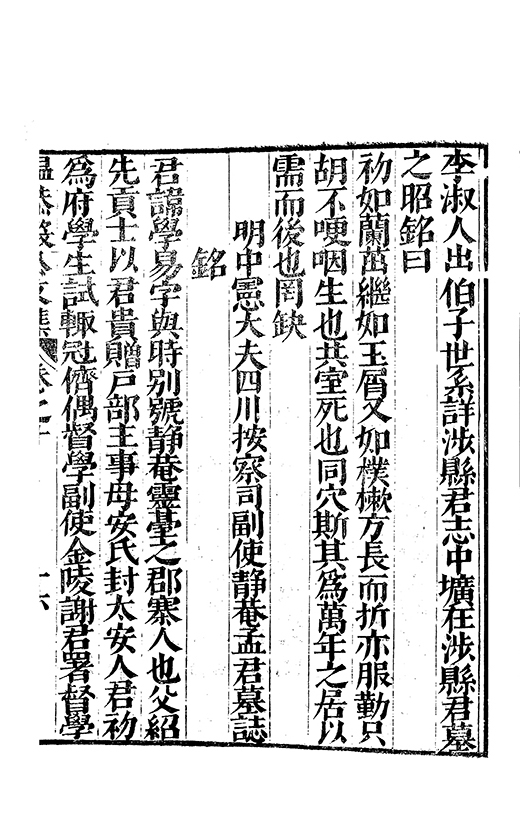 李淑人出伯子世系詳涉縣君志中壙在涉縣君墓
之昭銘曰
初如蘭茁繼如玉屑又如樸樕方長而折亦服勤只
胡不哽咽生也共室死也同穴斯其爲萬年之居以
需而後也罔缺
明中憲大夫四川按察司副使静菴孟君墓誌
銘
君諱學易字與時别號静菴靈臺之郡寨人也父紹
先貢士以君貴贈戸部主事母安氏封太安人君初
爲府學生試輙冠儕偶督學副使金陵謝君署督學
温恭毅公文集 卷之十 十六